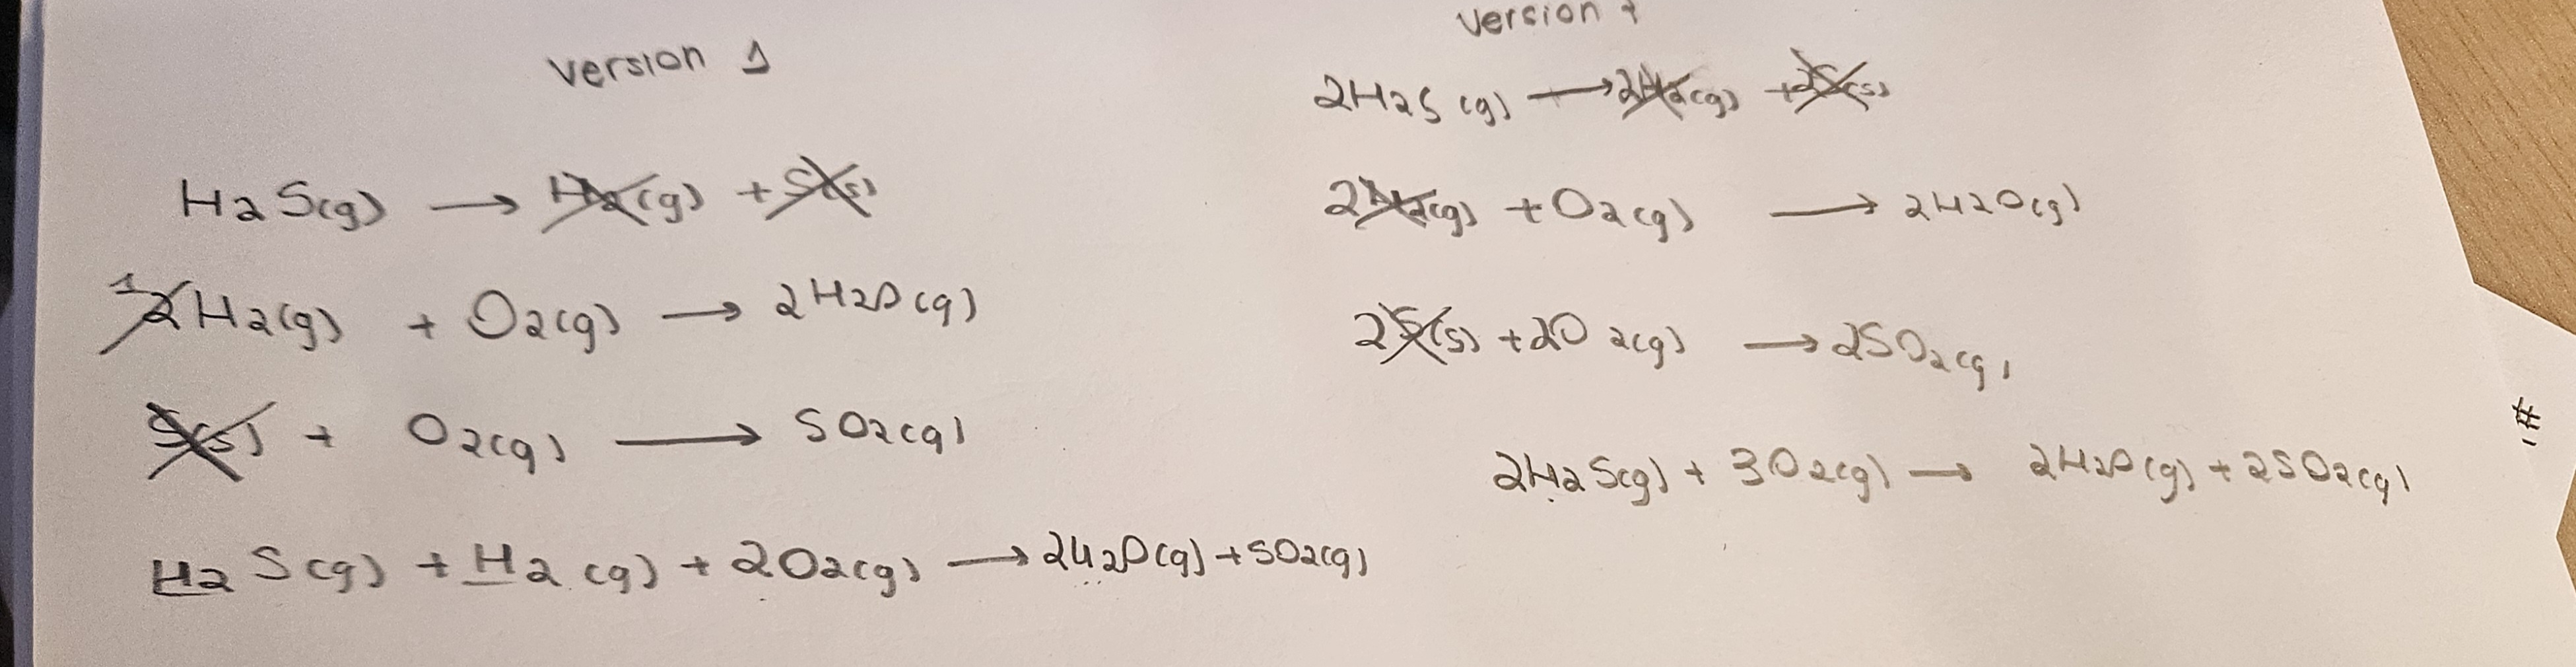 version 1
H2S(g) → H2(g) + S(s)
1 2H2(g) + O2(g) → 2H2O(g)
S(s) + O2(g) → SO2(g)
H2S(g) + H2(g) + 2O2(g) → 2H2O(g) + SO2(g)
version
2H2S(g) → 2H2(g) + 2S(s)
2H2(g) + O2(g) → 2H2O(g)
2S(s) + 2O2(g) → 2SO2(g)
2H2S(g) + 3O2(g) → 2H2O(g) + 2SO2(g)
#